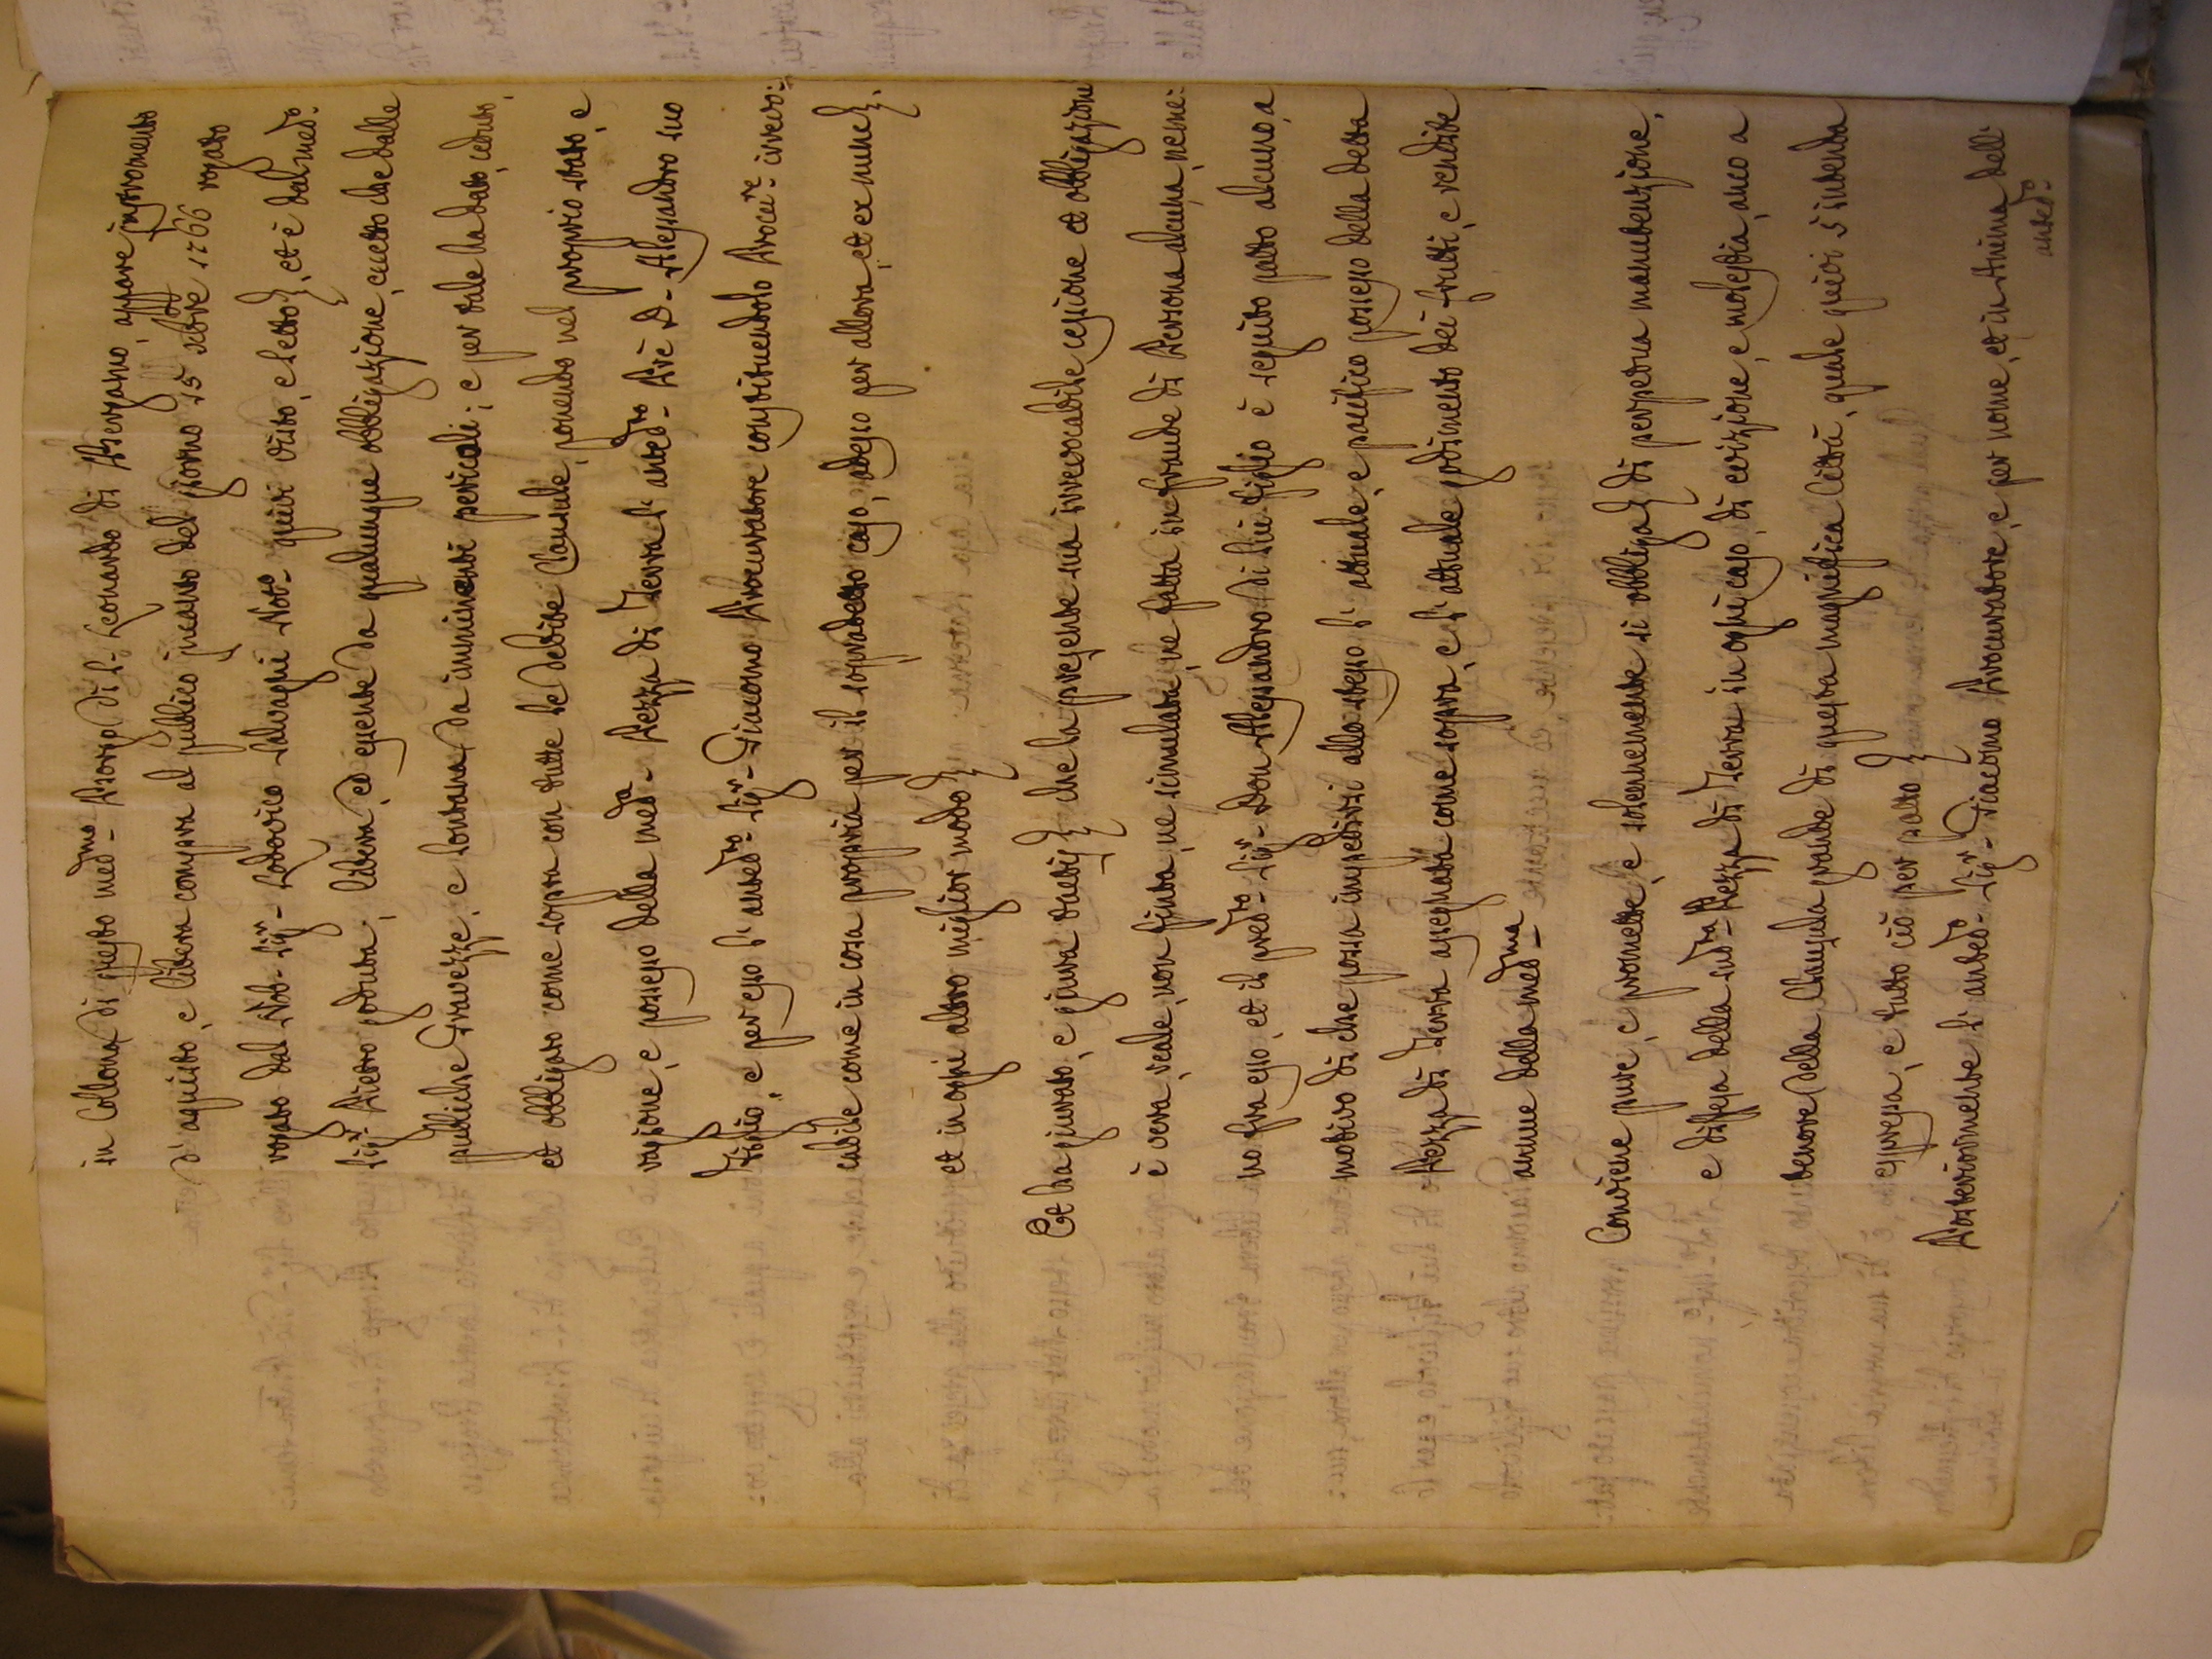 in Collona di questo med.mo Borgo di S. Leonardo di Bergamo, appare instromento
d'aquisto, e libera compra al publico incanto del giorno 15 7bre 1766 rogato
rogato dal Nob. Sig.r Lodovico Salvagni Not.o quivi visto, e letto, et è dal med.o
Sig.r Pietro goduta, libera, ed esente da qualunque obbligazione, eccetto che dalle
publiche Gravezze, e lontana da imminenti pericoli; e per tale ha dato, ceduto,
et obbligato come sopra con tutte le debite Clausule, ponendo nel proprio stato, e
ragione, e possesso della med.a Pezza di Terra l'anted.to Pre D. Alessandro suo
Figlio, e per esso l'anted.to Sig.r Giacomo Procuratore constituendolo Procur.re irrevo:
cabile come in cosa propria per il sopradetto caso, adesso per allora, et ex nunc
et in ogni altro miglior modo
Et ha giurato, e giura che la presente sua irrevocabile cessione et obbligazione
è vera, reale, non finta, ne simulata, ne fatta in fraude di Persona alcuna, neme:
no fra esso, et il pred.to Sig.r Don Alessandro di lui Figlio è seguito patto alcuno, a
motivo di che possa impedirsi allo stesso l'attuale, e pacifico possesso della detta
Pezza di Terra assegnata come sopra, e l'attuale godimento dei frutti, e rendite
annue della med.ma
Conviene pure, e promette, e solennemente si obbliga di perpetua manutenzione,
e difesa della sud.ta Pezza di Terra in ogni caso di evizione, e molestia, anco a
tenore della Clausula grande di questa magnifica Città, quale quivi s'intenda
espressa, e tutto ciò per patto
Posteriormente l'anted.o Sig.r Giacomo Procuratore, e per nome, et in Anima dell'
anted.o